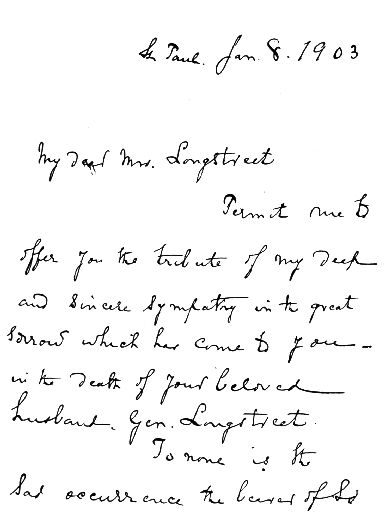 St Paul. Jan. 8. 1903
My dear Mrs. Longstreet
Permit me to
offer you the tribute of my deep
and sincere sympathy in the great
sorrow which has come to you –
in the death of your beloved
husband, Gen. Longstreet.
To none is the
sad occurrence the bearer of so